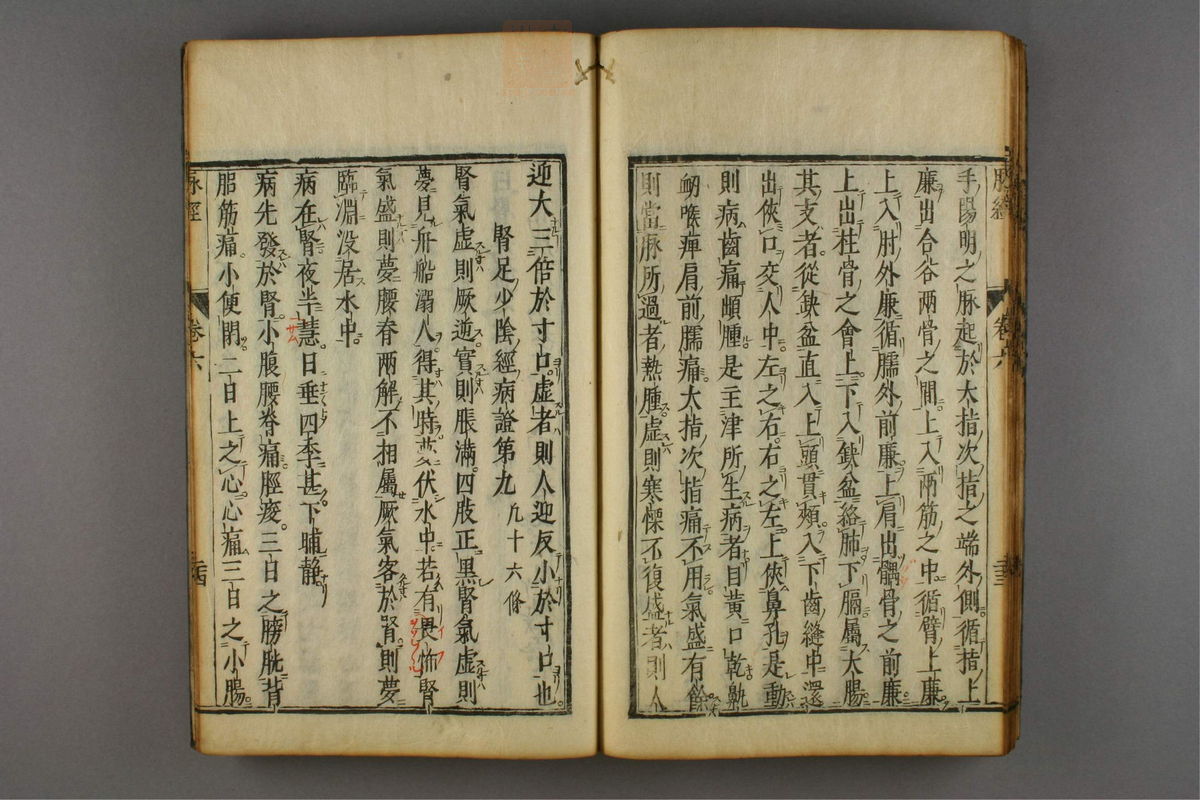 脉經
卷六
手陽明之脉起於大指次指之端外側循指上
廉出合谷兩骨之間上入兩筋之中循臂上廉
上入肘外廉循臑外前廉上肩出髃骨之前廉
上出柱骨之會上下入缺盆絡肺下膈屬大腸
其支者從缺盆直入上頸貫頰入下齒縫中還
出俠口交人中左之右右之左上俠鼻孔是動
則病齒痛䪼腫是主津所生病者目黄口乾鼽
衂喉痺肩前臑痛大指次指痛不用氣盛有餘
則當脉所過者熱腫虛則寒慄不復盛者則人
迎大三倍於寸口虛者則人迎反小於寸口也
腎足少陰經病證第九 凡十六條
腎氣虛則厥逆實則脹滿四肢正黑腎氣虛則
夢見舟船溺人得其時夢伏水中若有畏怖腎
氣盛則夢腰脊兩解不相屬厥氣客於腎則夢
臨淵没居水中
病在腎夜半慧日垂四季甚下晡静
病先發於腎小腹腰脊痛脛痠三日之膀胱背
䏚筋痛小便閉二日上之心心痛三日之小腸
脉經
卷六